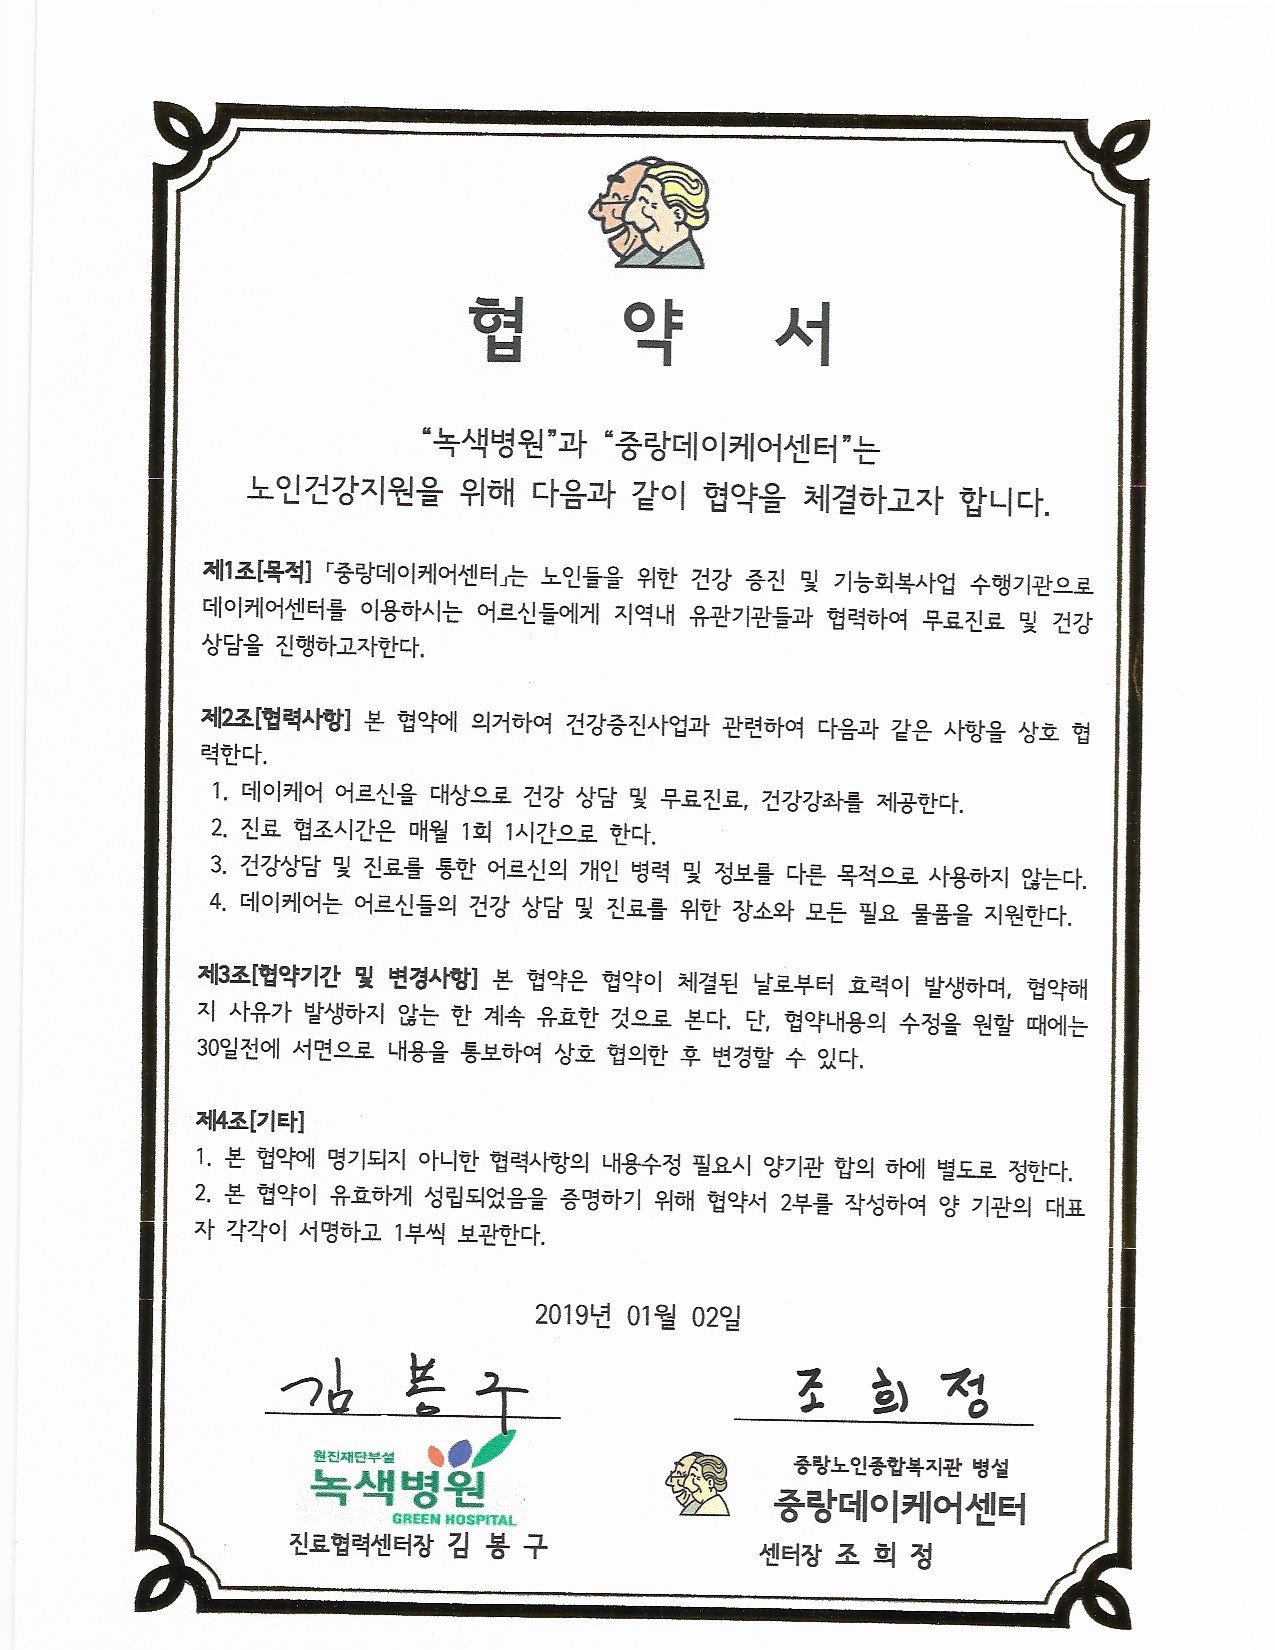 협 약 서
“녹색병원”과 “중랑데이케어센터”는
노인건강지원을 위해 다음과 같이 협약을 체결하고자 합니다.
제1조[목적] 「중랑데이케어센터」는 노인들을 위한 건강 증진 및 기능회복사업 수행기관으로
데이케어센터를 이용하시는 어르신들에게 지역내 유관기관들과 협력하여 무료진료 및 건강
상담을 진행하고자한다.
제2조[협력사항] 본 협약에 의거하여 건강증진사업과 관련하여 다음과 같은 사항을 상호 협
력한다.
1. 데이케어 어르신을 대상으로 건강 상담 및 무료진료, 건강강좌를 제공한다.
2. 진료 협조시간은 매월 1회 1시간으로 한다.
3. 건강상담 및 진료를 통한 어르신의 개인 병력 및 정보를 다른 목적으로 사용하지 않는다.
4. 데이케어는 어르신들의 건강 상담 및 진료를 위한 장소와 모든 필요 물품을 지원한다.
제3조[협약기간 및 변경사항] 본 협약은 협약이 체결된 날로부터 효력이 발생하며, 협약해
지 사유가 발생하지 않는 한 계속 유효한 것으로 본다. 단, 협약내용의 수정을 원할 때에는
30일전에 서면으로 내용을 통보하여 상호 협의한 후 변경할 수 있다.
제4조[기타]
1. 본 협약에 명기되지 아니한 협력사항의 내용수정 필요시 양기관 합의 하에 별도로 정한다.
2. 본 협약이 유효하게 성립되었음을 증명하기 위해 협약서 2부를 작성하여 양 기관의 대표
자 각각이 서명하고 1부씩 보관한다.
2019년 01월 02일
김 봉 구
원진재단부설
녹색병원
GREEN HOSPITAL
진료협력센터장 김 봉 구
조 희 정
중랑노인종합복지관 병설
중랑데이케어센터
센터장 조 희 정